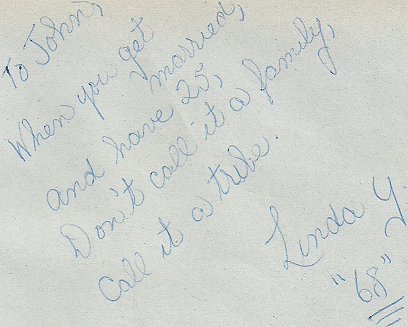 To John,
When you get
married,
and have 25,
Don't call it a family,
Call it a tribe.
Linda Y.
"68"